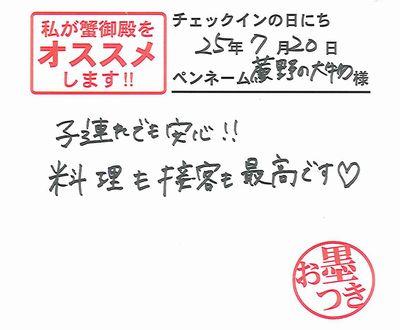 私が蟹御殿を
オススメ
します!!
チェックインの日にち
25年7月20日
ペンネーム 菱野の大物 様
子連れでも安心!!
料理も接客も最高です♡
お墨
つき